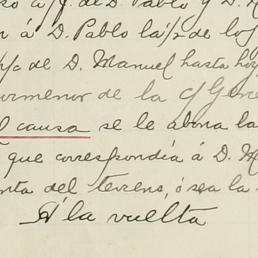 á D. Pablo la 1/2 de los
D. Manuel hasta hoy
pormenor de la c/ Gene
causa se le abona la
que correspondía á D. M
nta del terreno, ó sea la
A' la vuelta